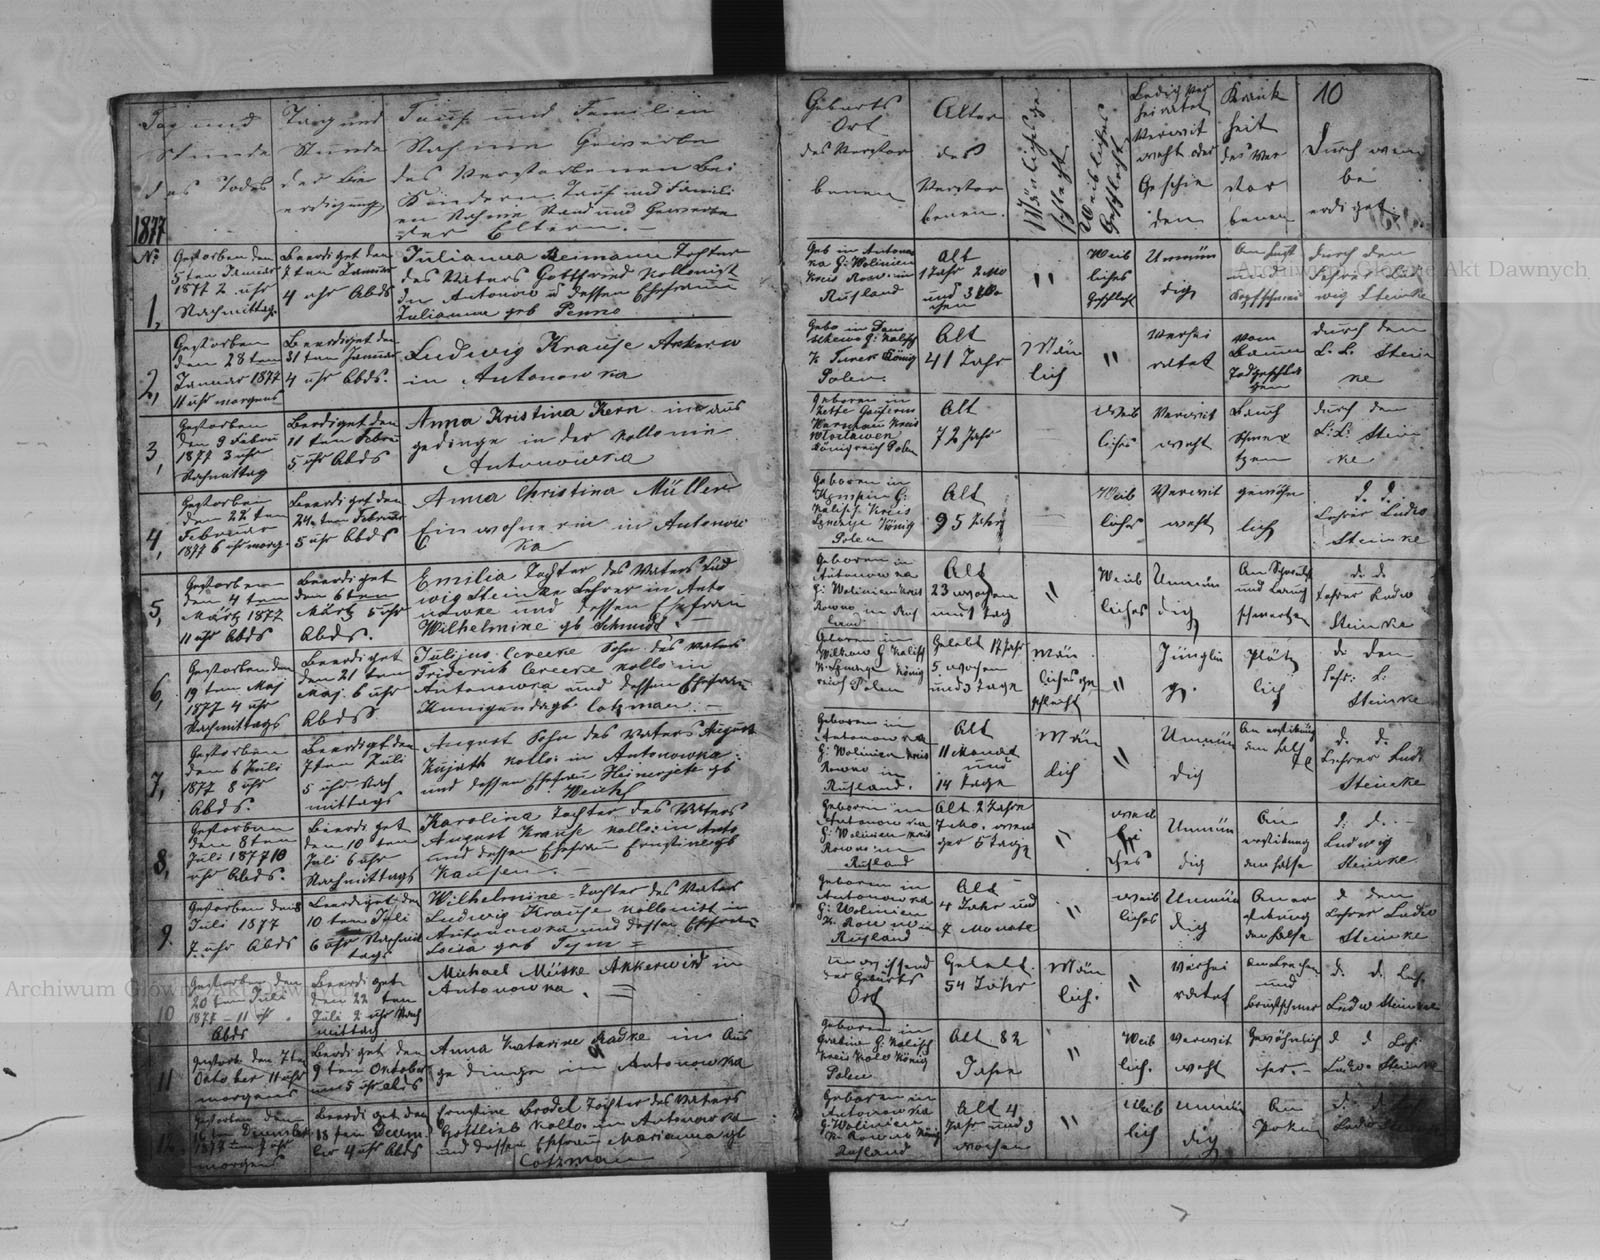 Tag und
Stunde
des Todes
1877
Tag und
Stunde
der Be
erdigung
Tauf und Familien
Nahme Gewerbe
des Verstorbenen Bei
Kindern Tauf und Famili
en Nahme Stand und Gewerbe
der Eltern.
Geburts
Ort
des Verstor
benen
Alter
des
Verstor
benen.
Mänlichsge
schlecht
Weibliches
Geschlecht
Ledig Ver
heiratet
Verwit
weht oder
Geschie
den
Krank
heit
des Ver
stor
benen
10
Durch wem
be
erdiget
No
1,
Gestorben den
5 ten Januar
1877 2 uhr
Nachmittag
Beerdiget den
7 ten Januar
4 uhr Abds
Julianna Reimann Tochter
des Vaters Gottfried Kollonist
in Antonow u dessen Ehefraun
Julianna geb Penno
Geb in Antonow
ka G: Wolinien
Kreis Rowno in
Rußland
Alt
1 Jahr 2 Mo
und 3 Wo
chen
"
Weib
liches
Geschlecht
Unmün
dig
durch den
Lehrer Lud
wig Steinke
2,
Gestorben
den 28 ten
Januar 1877
11 uhr morgens
Beerdiget den
31 ten Januar
4 uhr Abds.
Ludwig Krause Ankerw
in Antonowka
K Turek König
Polen.
Alt
41 Jahr
Män
lich
"
Verhei
ratet
vom
Baume
Todgeschla
gen
durch den
L. L. Stein
ke
3,
Gestorben
den 9 Febru
1877 3 uhr
Nachmittag
Berdiget den
11 ten Febru
5 uhr Abds
Anna Kristina Kern in aus
gedinge in der Kollonie
Antonowka
Geboren in
Warschau Kreis
Wloclawek
Königreich Polen
Alt
72 Jahr
Weib
liches
Verwit
weht
Bauch
schmer
tzen
durch den
L: L: Stein
ke
4,
Gestorben
den 22 ten
Februar
1877 6 uhr morg.
Beerdiget den
24 ten Februar
5 uhr Abds
Anna Christina Müller
Einwohnerin in Antonow
ka
Geboren in
Kalisch Kreis
König
Polen
Alt
95 Jahr
Weib
liches
Verwit
weht
gewöhn
lich
d. d.
Lehrer Ludw
Steinke
5,
Gestorben
den 4 ten
März 1877
11 uhr Abds
Beerdiget
den 6 ten
März 5 uhr
Abds.
Emilia Tochter des Vaters Lud
wig Steinke Lehrer in Anto
nowke und dessen Ehefrau
Wilhelmine gb Schmidt
Geboren in
Antonowka
G: Wolinien Kreis
Rowno in Ruß
land
Alt
23 wochen
und 1 tag
"
Weib
liches
Unmün
dig
d. d.
Lehrer Ludw
Steinke
6,
Gestorben den
19 ten Maj
1877 4 uhr
Nachmittags
Beerdiget
den 21 ten
Maj 6 uhr
Abds
Julijus Cerecke Sohn des Vaters
Friderich Cerecke kollo in
Antonowka und dessen Ehefrau
Kunigenda gb Cotzman.
Geboren in
G Kalisch
König
reich Polen
Gelebt 17 Jahr
5 wochen
und 3 tage
Män
liches ge
schlecht
"
Jünglin
g.
Plötz
lich
d. den
Lehr: L:
Steinke
7,
Gestorben
den 6 Juli
1877 8 uhr
Abds.
Beerdigt den
7 ten Juli
5 uhr Nach
mittags
August Sohn des Vaters August
Kujath kollo: in Antonowka
und dessen Ehefrau Heinerjete gb
Geboren in
Antonowka
G: Wolinien Kreis
Rowno in
Rußland.
Alt
11 Monat
und
14 tage
Män
lich
"
Unmün
dig
d. d.
Lehrer Lud
Steinke
8,
Gestorben
den 8 ten
Juli 1877 10
uhr Abds.
Beerdiget
den 10 ten
Juli 6 uhr
Nachmittags
Karolina Tochter des Vaters
August Krause kollo: in Anto
und dessen Ehefrau Ernstine gb
Geboren in
Antonowka
G: Wolinien Kreis
Rowno in
Rußland
Alt 2 Jahre
7 Mo.
5 tage
"
Weib
li
ches
Unmün
dig
An
erstikung
am halse
d. d.
Ludwig
Steinke
9.
Gestorben den 8
Juli 1877
7 uhr Abds
Beerdiget den
10 ten Juli
6 uhr Nachmit
tags
Wilhelmine Tochter des Vaters
Ludwig Krause kollonist in
Antonowka und dessen Ehefrau
geb Tym
Geboren in
Antonowka
G: Wolinien
K. Rowno in
Rußland
Alt
4 Jahr und
7 Monate
"
Weib
liches
Unmün
dig
d den
Lehrer Ludw
Steinke
10
Gestorben den
20 ten Juli
1877 11 uhr
Abds
Beerdiget
den 22 ten
Juli 2 uhr Nach
mittag
Michael Müske Ankerwird in
Antonowka.
unwissend
der Geburts
Ort
Gelebt
54 Jahr
Män
lich.
"
Verhei
ratet
d. d. Leh.
Ludw Steinke
11
Gestorb den 7 ten
Oktober 11 uhr
morgens
Beerdiget den
9 ten Oktober
um 5 uhr abds
Anna Katarine Radke in Aus
gedinge in Antonowka
Geboren in
G: Kalisch
Kreis Kolo König
Polen
Alt 82
Jahre
"
Weib
lich.
Verwit
weht
Gewöhnlich
d d Leh:
Ludw. Steinke
12.
Gestorben den
16 ten Dezember
morgens
Beerdiget den
18 ten Decem
ber 4 uhr Abds
Ernstine Brodel Tochter des Vaters
Gottlieb kollo. in Antonowka
und dessen Ehefrau Marianna gb
Cotzman
Geboren in
Antonowka
G: Wolinien
K: Rowno
Rußland
Alt 4
Jahr und 3
wochen
"
Weib
lich
Unmün
dig
An
Poken
d. d.
Archiwum Główne Akt Dawnych
Archiwum Główne Akt Dawnych